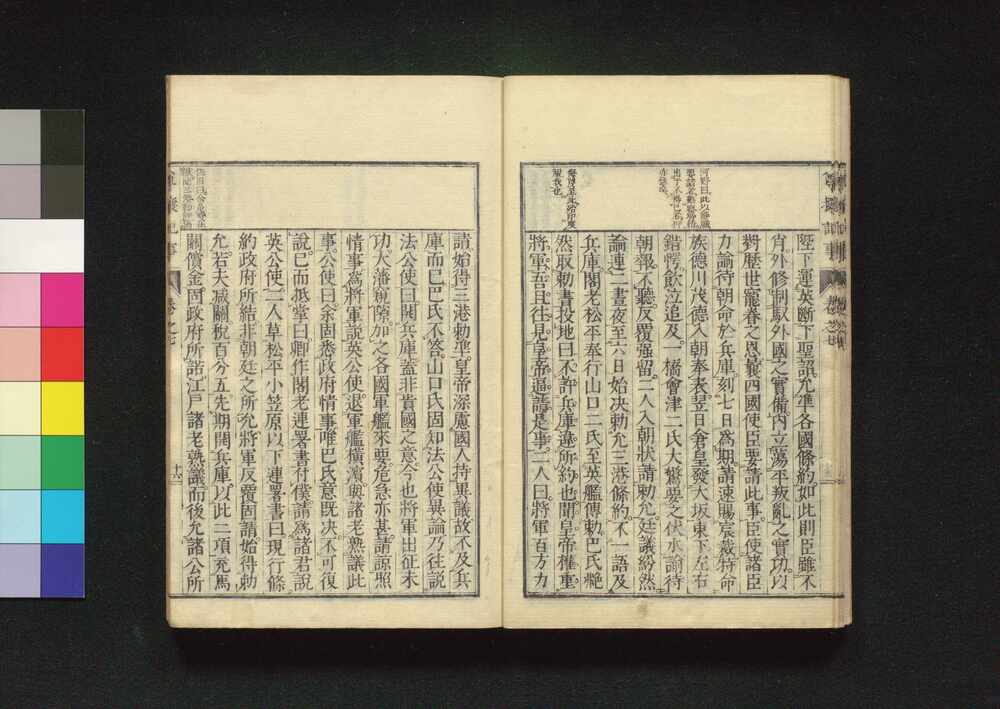 陛下運英斷下聖詔允準各國條約如此則臣雖不
肖外修制馭外國之實備內立蕩平叛亂之實功以
對歷世寵眷之恩曩四國使臣要請此事臣使諸臣
力諭待朝命於兵庫刻七日爲期請速賜宸裁特命
族德川茂德入朝奉表翌日倉皇發大坂東下左右
錯愕飲泣追及一橋會津二氏大驚要之伏水諭待
朝報不聽反覆强留二人入朝狀請勅允廷議紛然
論連二晝夜至六日始决勅允三港條約不一語及
兵庫閣老松平奉行山口二氏至英艦傳勅巴氏艴
然取勅書投地曰不許兵庫違所約也聞皇帝權重
將軍吾且往見皇帝逼請是事二人曰將軍百方力
請始得三港勅準皇帝深慮國人持異議故不及兵
庫而已巴氏不答山口氏固知法公使異論乃往說
法公使曰開兵庫蓋非貴國之意今也將軍出征未
功大藩窺隙加之各國軍艦來要危急亦甚請諒照
情事爲將軍說英公使退軍艦橫濱與諸老熟議此
事公使曰余固悉政府情事唯巴氏意既决不可復
說已而低掌曰卿作閣老連署書付僕請爲諸君說
英公使二人草松平小笠原以下連署書曰現行條
約政府所結非朝廷之所允將軍反覆固請始得勅
允若夫減關稅百分五先期開兵庫以此二項充馬
關償金固政府所諾江戶諸老熟議而後允諸公所